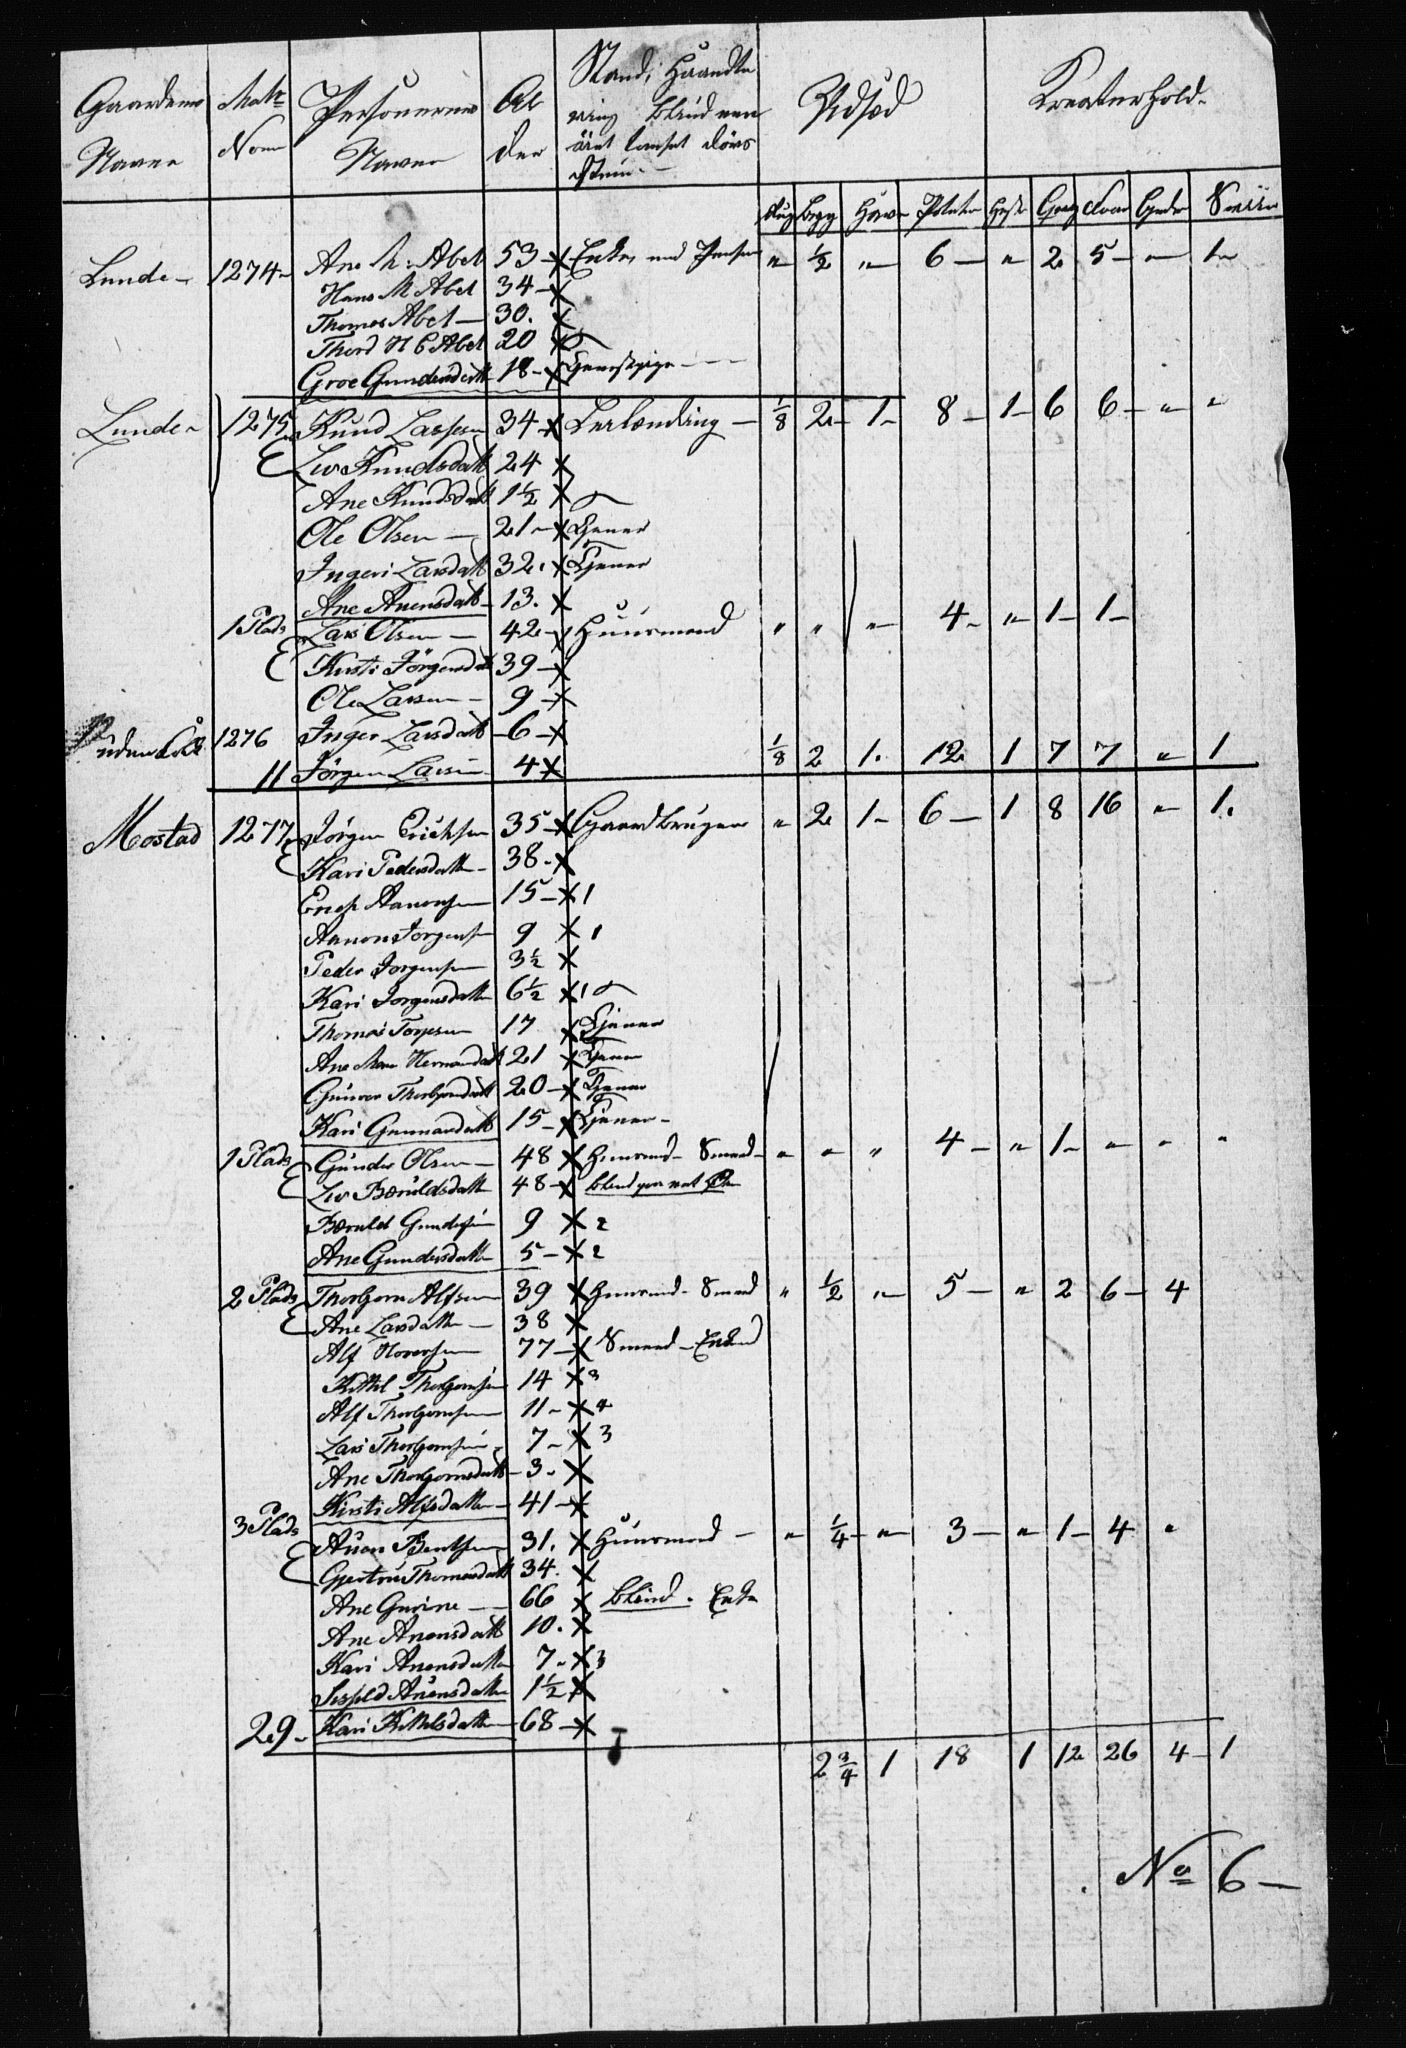 Gaardenes Navne | Matr Nom | Personernes Navne | Alder | Stand, Haandtering blind | Udsæd | Kreaturhold.
Rug | Bygg | Havre | Poteter | Heste | | Faar | Geder | Sviin
Lunde - | 1274 - | Ane M: Abel | 53 - X | Enke med Pension | " | ½ | " | 6 - | " | 2 | 5 - | " | 1 -
Hans M Abel | 34 - X
Thomas Abel - | 30. X
Thord H C Abel | 20 X
Groe Gundersdatt | 18 - X | Tjenestpige - - -
Lunde - | 1275 | Knud Larsen | 34 - X | Leilænding - | 1/8 | 2 - | 1 - | 8 - | 1 - | 6 | 6 - | " | "
Liv Knudsdatt | 24 X
Ane Knudsdatt | 1½ X
Ole Olsen - | 21 - X | Tjener
Ingeri Larsdatt | 32. X | Tjener
Ane Anensdatt - | 13. X
1 Plads | Lars Olsen - | 42 - X | Huusmand | " | " | " | 4 - | " | 1 - | 1 -
Kirsti Jörgensdatt | 39 - X
Ole Larsen - | 9 - X
1276 | Inger Larsdatt | - 6 - X
11 | Jörgen Larsen | 4 X | 1/8 | 2 | 1. | 12 | 1 | 7 | 7 | " | 1
Mostad | 1277 | Jörgen Erichsen | 35 - X | Gaardbruger | " | 2 | 1 - | 6 - | 1 | 8 | 16 | " | 1.
Kari Pedersdatter - | 38 - X
Erich Aanonsen | 15 - X 1
Aanon Jorgensen | 9 X 1
Peder Jorgensen | 3½ X
Kari Jorgensdatter | 6½ X 1
Thomas Torjesen | 17 X | Tjener
Ane | 21 X | Tjener
Gunvor Thorbjornsdatt | 20 - X | Tjener
Kari Gunnarsdatt | 15 - X | Tjener -
1 Plads | Gunder Olsen - | 48 X | Huusmd - Smed - | " | " | " | 4 - | " | 1 - | " | " | "
Liv Bæruldsdatter | 48 - X | blind
Bæruld Gundersen | 9 X 2
Ane Gundersdatter | 5 - X 2
2 Plads | Thorbjorn Alfsen | 39 X | Huusmd - Smed | " | ½ | " | 5 - | " | 2 | 6 - | 4
Ane Larsdatter - | 38 X
Alf | 77 - X | Smed - Enkemd
Kittil Thorbjornsen | 14 X 3
Alf Thorbjornsen | 11 - X 4
Lars Thorbjornsen - | 7 - X 3
Ane Thorbjornsdatt | - 3. X
Kirsti Alfsdatter - | 41 - X
3 Plads | Aanon Bentsen | 31. X | Huusmand - | " | ¼ - | " | 3 - | " | 1 - | 4 | "
Gjertru Thomasdatt | 34. X
Ane Gurine - | 66 X | blind. Enke
Ane Anonsdatt | 10. X
Kari Anonsdatter | 7. X 3
Anonsdatter | 1½ X
29 - | Kari Kittilsdatter | - 68 - X
2¾ | 1 | 18 | 1 | 12 | 26 | 4 - | 1
No 6 -